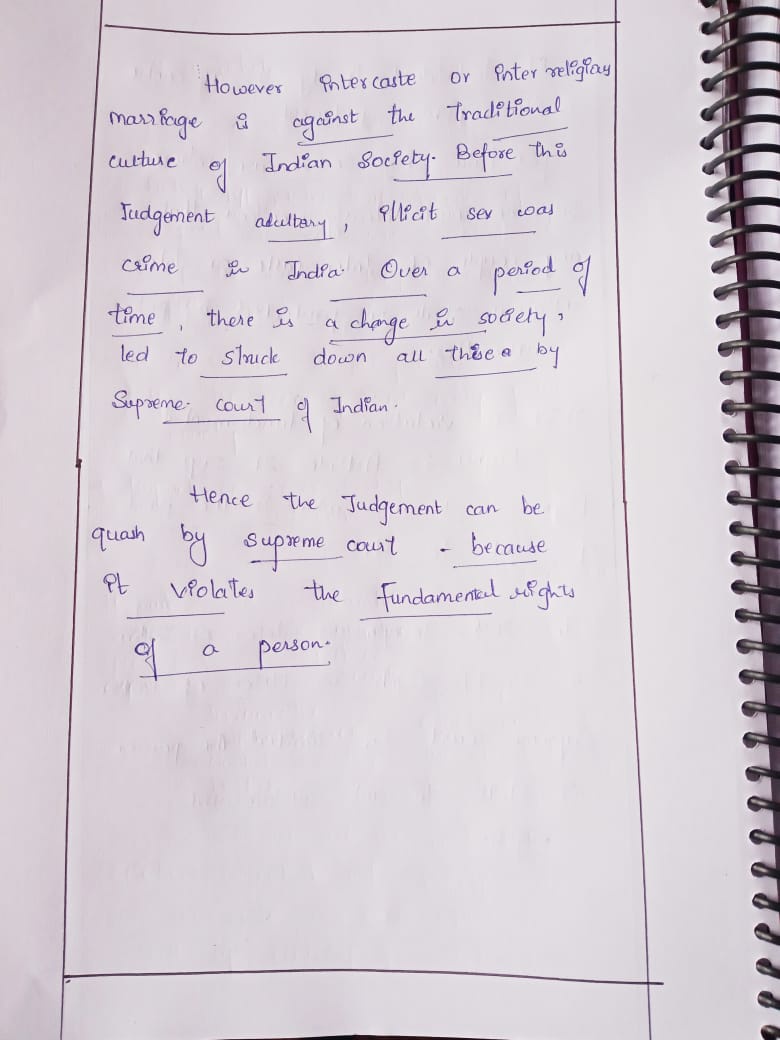 However intercaste or inter religiay
marriage is against the Traditional
culture of Indian Society. Before this
Judgement adultary, illicit sex was
crime in India. Over a period of
time, there is a change in society,
led to struck down all these by
Supreme court of Indian.
Hence the Judgement can be
quash by supreme court - because
it violates the fundamental rights
of a person.